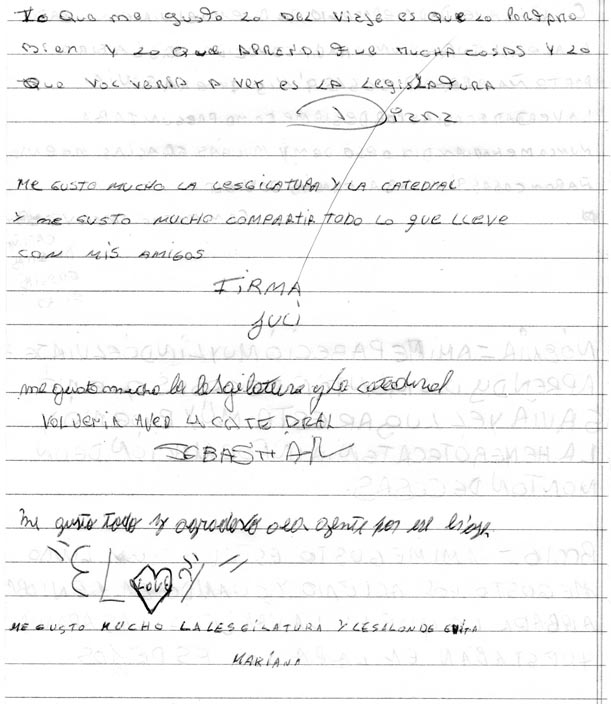 Lo Que me gusto Lo DEL Viaje es Que Lo Portamo
Bien y Lo QUE APRENDI FUE MUCHA COSAS Y LO
QUE VOLVERIA A VER es LA LegisLATURA
Diana
Me GUSTO MUCHO LA LESGILATURA Y LA CATEDRAL
Y me GUSTO MUCHO COMPARTIR TODO LO QUE LLEVE
CON MIS AMIGOS
FIRMA
JULI
me gusto mucho la lesgilatura y La catedral
VOLVERIA AVER LA CATEDRAL
SEBASTIAN
me gusto todo y agradesco a la gente por ese viaje
EL LOVE
ME GUSTO MUCHO LA LESGILATURA Y LESALON DE EVITA
MARIANA